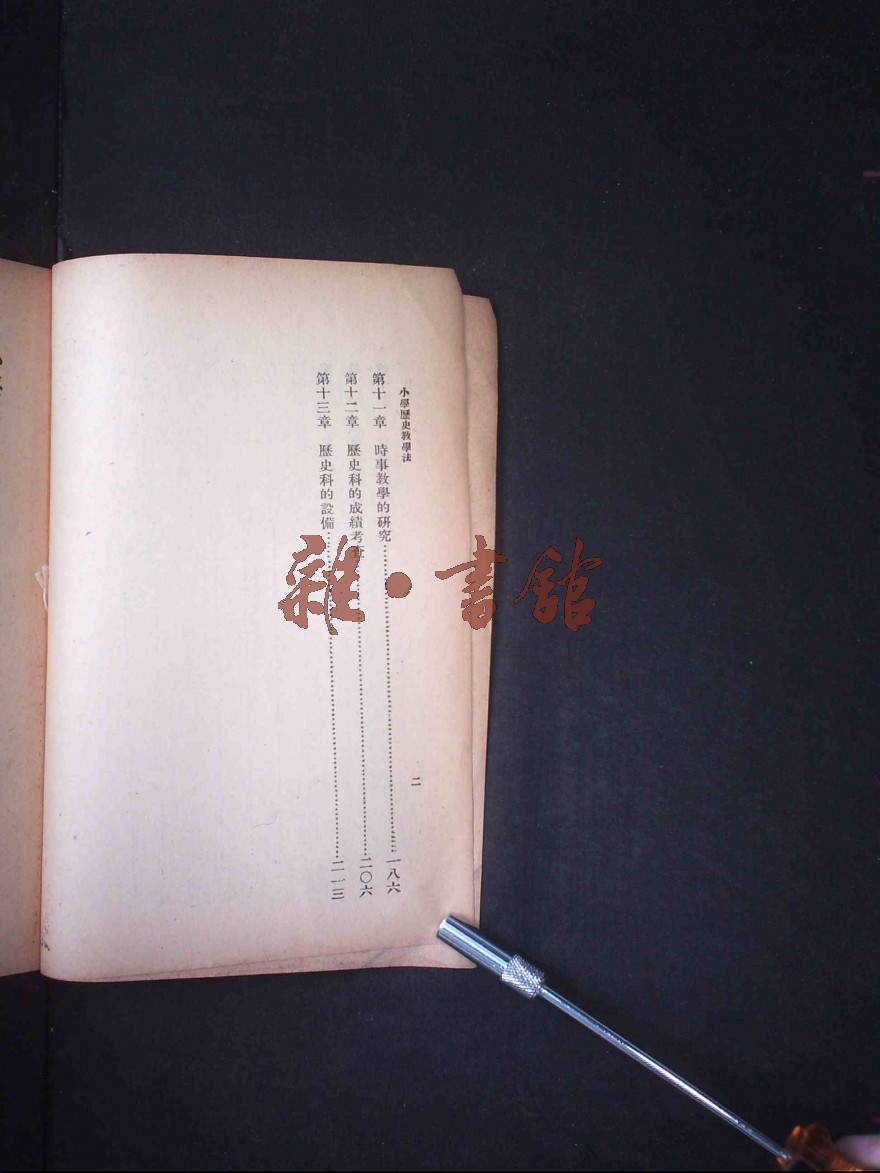 小學歷史教學法
二
第十一章 時事教學的研究…………一八六
第十二章 歷史科的成績考查…………二〇六
第十三章 歷史科的設備…………二一三
雜·書館